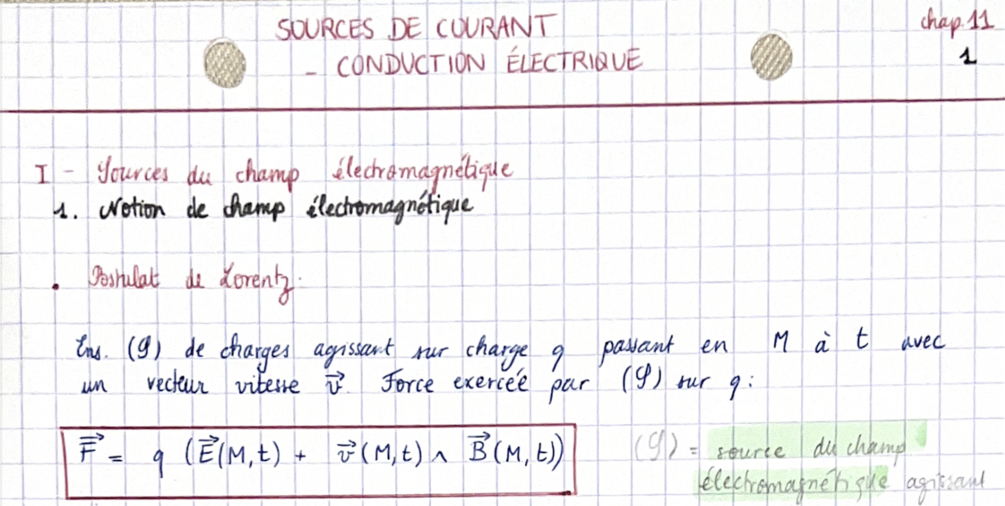 SOURCES DE COURANT
- CONDUCTION ÉLECTRIQUE
chap. 11
1
I - Sources du champ électromagnétique
1. Notion de champ électromagnétique
• Postulat de Lorentz.
Ens. (𝒮) de charges agissant sur charge q passant en M à t avec
un vecteur vitesse v⃗. Force exercée par (𝒮) sur q :
F⃗ = q (E⃗(M,t) + v⃗(M,t) ∧ B⃗(M,t))
(𝒮) = source du champ
électromagnétique agissant